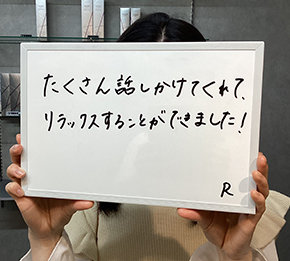 たくさん話しかけてくれて、
リラックスすることができました!
R